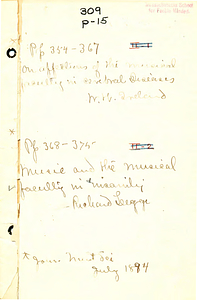 309
p-15
Pp 354-367
On affections of the musical
faculty in cerebral Diseases
W. W. Ireland
Pp 368-375
Music and the Musical
faculty in Insanity
- Richard Legge
July 1894